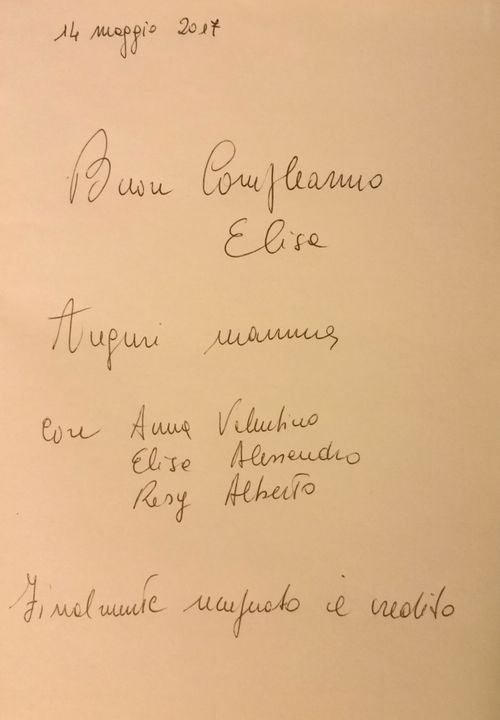 14 maggio 2017
Buon Compleanno
Elisa
Auguri mamma
con Anna Valentino
Elisa Alessandro
Resy Alberto
Finalmente il credito